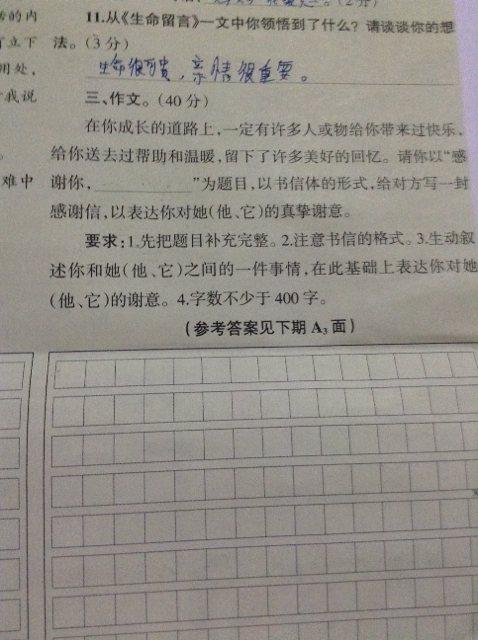 (2分)
的内
11.从《生命留言》一文中你领悟到了什么?请谈谈你的想
立下
法。(3分)
用处,
生命很可贵,亲情很重要。
我说
三、作文。(40分)
在你成长的道路上,一定有许多人或物给你带来过快乐,
。
给你送去过帮助和温暖,留下了许多美好的回忆。请你以“感
难中
谢你,”为题目,以书信体的形式,给对方写一封
感谢信,以表达你对她(他、它)的真挚谢意。
要求:1.先把题目补充完整。2.注意书信的格式。3.生动叙
述你和她(他、它)之间的一件事情,在此基础上表达你对她
(他、它)的谢意。4.字数不少于400字。
(参考答案见下期A3面)